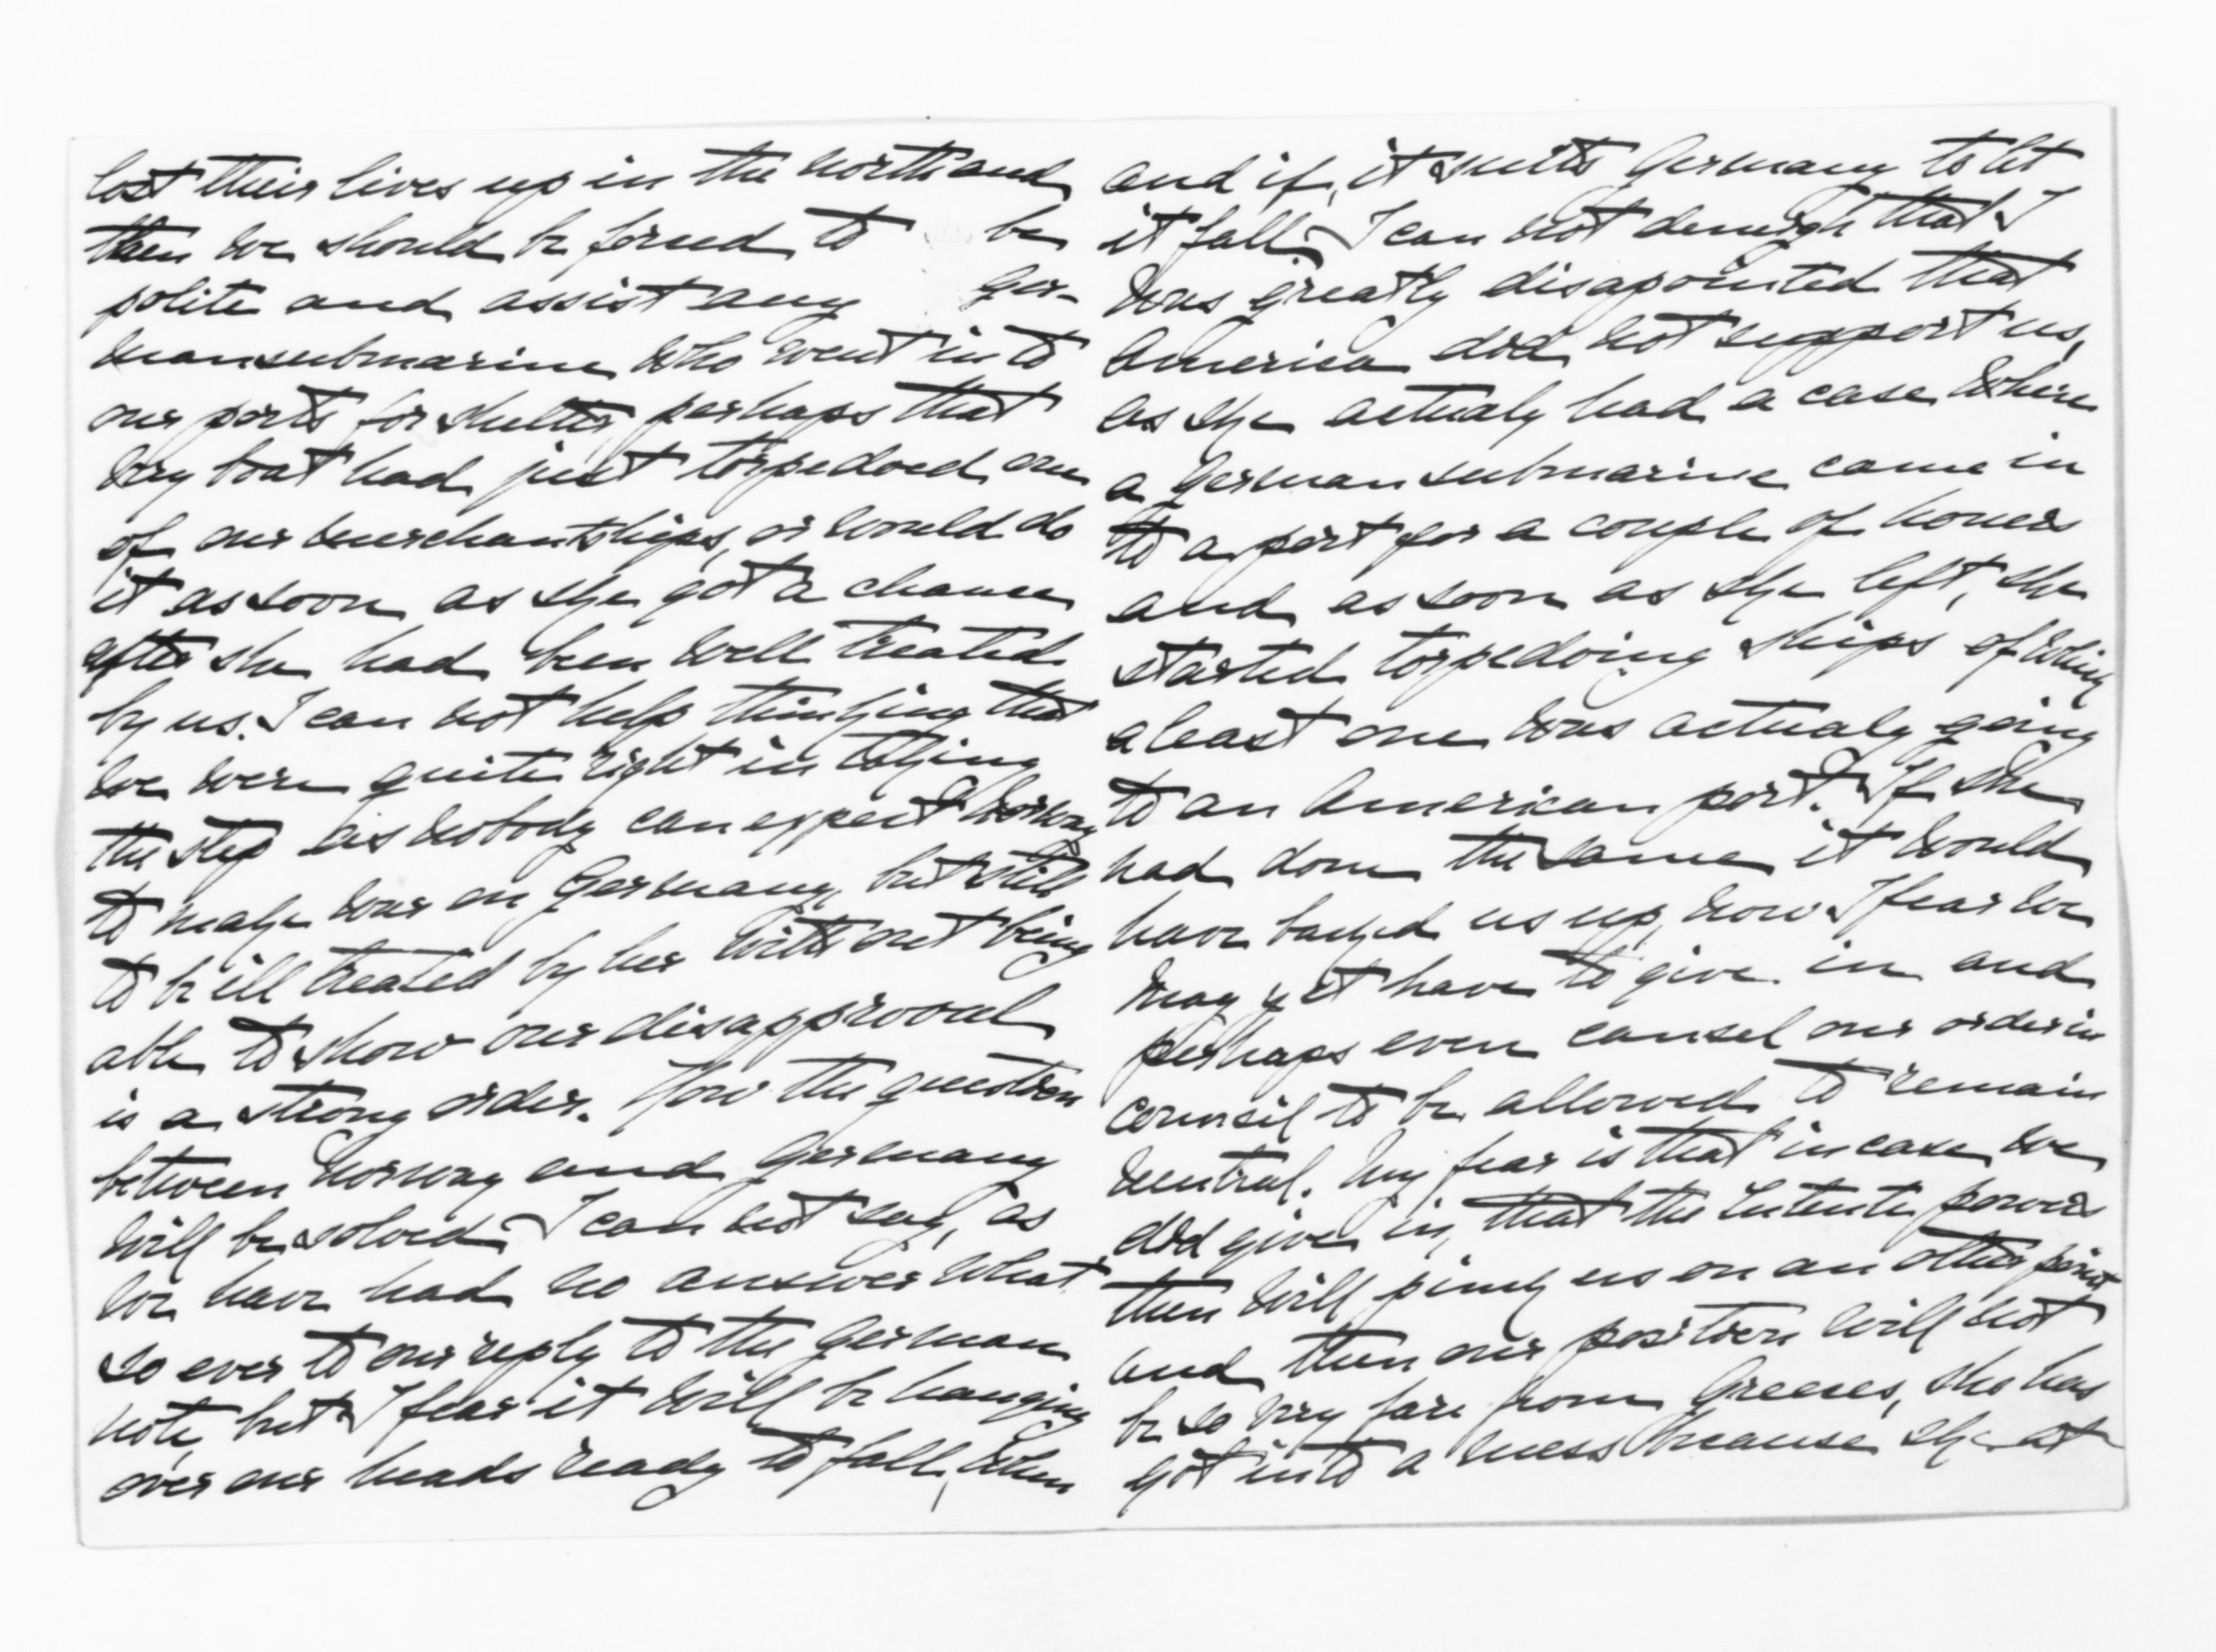 lost their lives up in the north and
then we should be forced to be
polite and assist any Ger-
man submarine who went in to
our ports for shelter perhaps that
very boat had just torpedoed one
of our merchantships, or would do
it as soon as she got a chance
after she had been well treated
by us. I can not help thinking that
we were quite right in taking
the step as nobody can expect Norway
to make war on Germany, but still
to be ill treated by her with out being
able to show our disapprooval
is a strong order. How the question
between Norway and Germany
will be solved I can not say, as
we have had no answer what
so ever to our reply to the German
note, but I fear it will be hanging
over our heads ready to fall, when
and if, it suits Germany to let
it fall. I can not denigh that I
was greatly disapointed that
America did not support us,
as she actualy had a case where
a German submarine came in
to a port for a couple of houers
and as soon as she left, she
started torpedoing ships of which
aleast one was actualy going
to an American port. If she
had done the same it would
have backed us up, now I fear we
may yet have to give in and
perhaps even cansel our order in
counsil to be allowed to remain
neutral. My fear is that in case we
did give in, that the Entente powers
then will pinch us on an other point
and then our position will not
be so very fare from Greeces, she has
got into a mess because she at